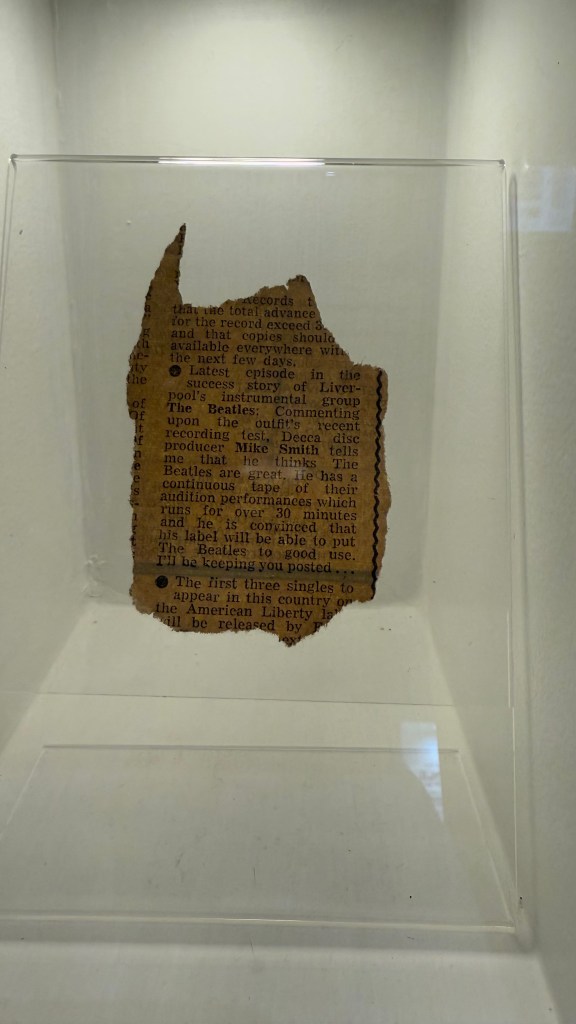 Records
that the total advance
for the record exceed
and that copies should
available everywhere
the next few days.
Latest episode in the
success story of Liver-
pool's instrumental group
The Beatles: Commenting
upon the outfit's recent
recording test, Decca disc
producer Mike Smith tells
me that he thinks The
Beatles are great. He has a
continuous tape of their
audition performances which
runs for over 30 minutes
and he is convinced that
his label will be able to put
The Beatles to good use.
I'll be keeping you posted...
The first three singles to
appear in this country on
the American Liberty
will be released by